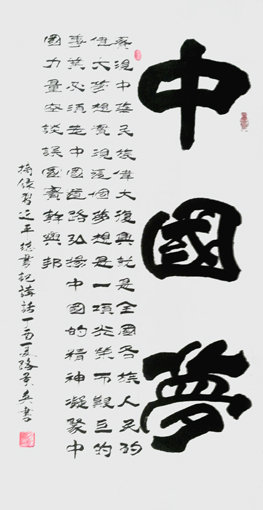 中國夢
現中華民族偉大復興就是全國各族人民的
偉大夢想實現這個夢想是一項光榮而艱巨的
事業必須走中國道路弘揚中國的精神凝聚中
國力量空談誤國實幹興邦
摘錄習近平總書記講話 夏 景英書